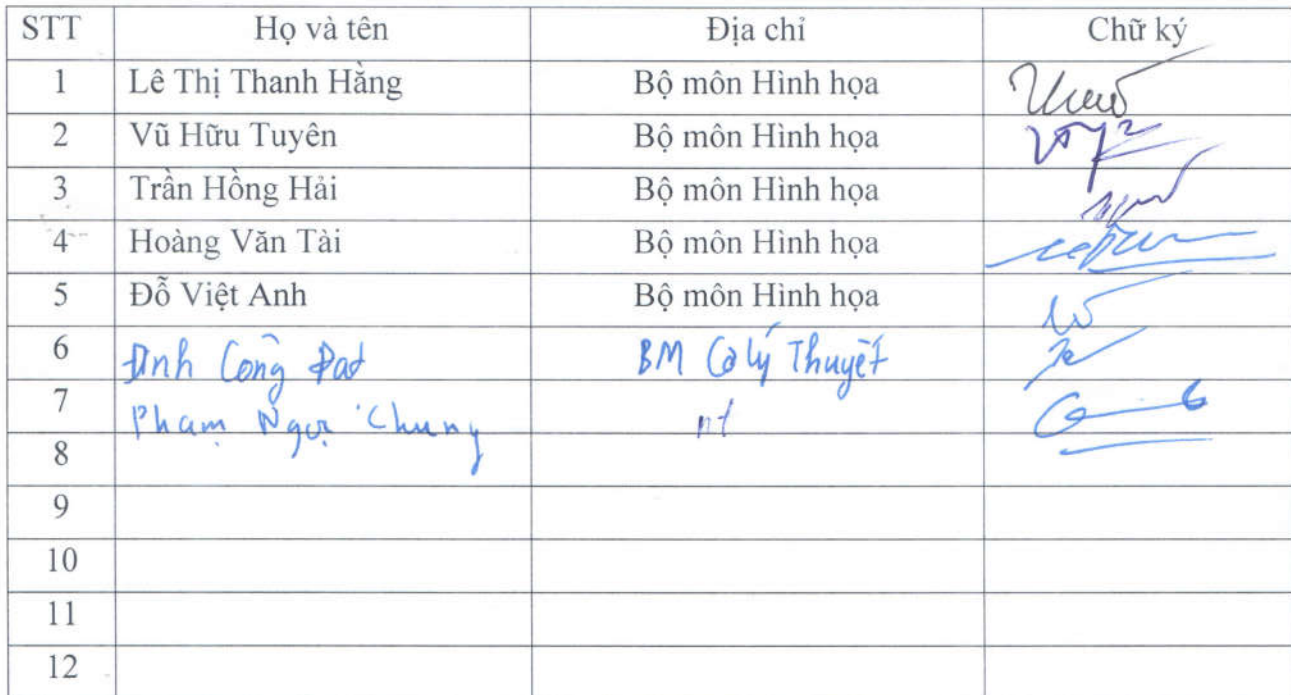 STT Họ và tên Địa chỉ Chữ ký
1 Lê Thị Thanh Hằng Bộ môn Hình họa
2 Vũ Hữu Tuyên Bộ môn Hình họa
3 Trần Hồng Hải Bộ môn Hình họa
4 Hoàng Văn Tài Bộ môn Hình họa
5 Đỗ Việt Anh Bộ môn Hình họa
6 Đinh Công Đạt BM Cơ lý Thuyết
7 Phạm Ngọc Chung nt
8
9
10
11
12